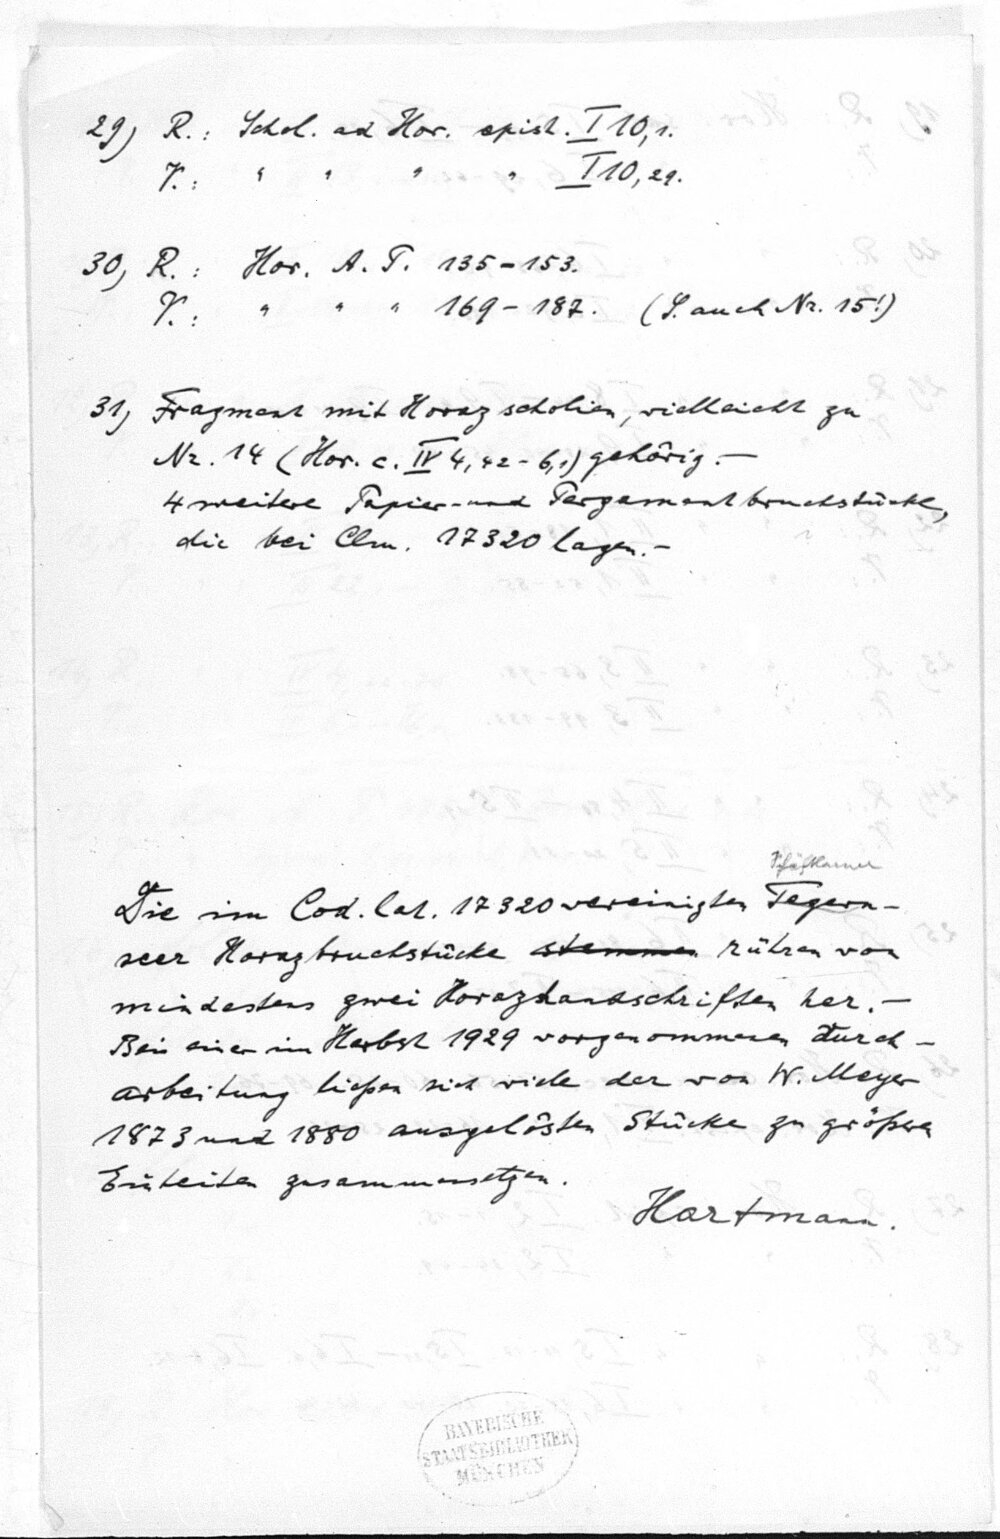 29) R.: Schol. ad Hor. epist. I 10,1.
V.: " " " " I 10,29.
30) R.: Hor. A. P. 135-153.
V.: " " " 169-187. (S. auch Nr. 15!)
31) Fragment mit Horazscholien, vielleicht zu
Nr. 14 (Hor. c. IV 4,42-6,1) gehörig. —
4 weitere Papier- und Pergamentbruchstücke,
die bei Clm. 17320 lagen. —
Die im Cod. lat. 17320 vereinigten Tegern-
seer Horazbruchstücke stammen rühren von
mindestens zwei Horazhandschriften her. —
Bei einer im Herbst 1929 vorgenommenen Durch-
arbeitung ließen sich viele der von W. Meyer
1873 und 1880 ausgelösten Stücke zu größeren
Einheiten zusammensetzen.
Hartmann.
BAYERISCHE
STAATSBIBLIOTHEK
MÜNCHEN